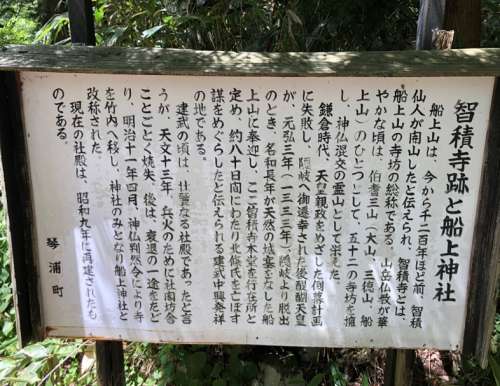 智積寺跡と船上神社
船上山は、今から千二百年ほど前、智積
仙人が開山したと伝えられ、智積寺とは、
船上山の寺坊の総称である。山岳仏教が華
やかな頃は、伯耆三山(大山、三徳山、船
上山)のひとつとして、五十二の寺坊を擁
し、神仏混交の霊山として半えた。
鎌倉時代、天皇親政をめざした倒幕計画
に失敗し、隠岐へ御遷幸された後醍醐天皇
が、元弘三年(一三三三年)隠岐より脱出
のとき、名和長年が天然の城塞をなした船
上山に奉迎し、ここ智積寺本堂を行在所と
定め、約八十日間にわたり北條氏を亡ぼす
謀をめぐらしたと伝えられ、建武中興発祥
の地である。
建武の頃は、壮麗なる社殿であったと言
うが、天文十三年、兵火のために社南が合
ことごとく焼失、後は、衰退の一途をたど
り、明治十一年四月、神仏判然令により寺
を竹内へ移し、神社のみとなり船上神社と
改称された。
現在の社殿は、昭和九年に再建されたも
のである。
琴浦町